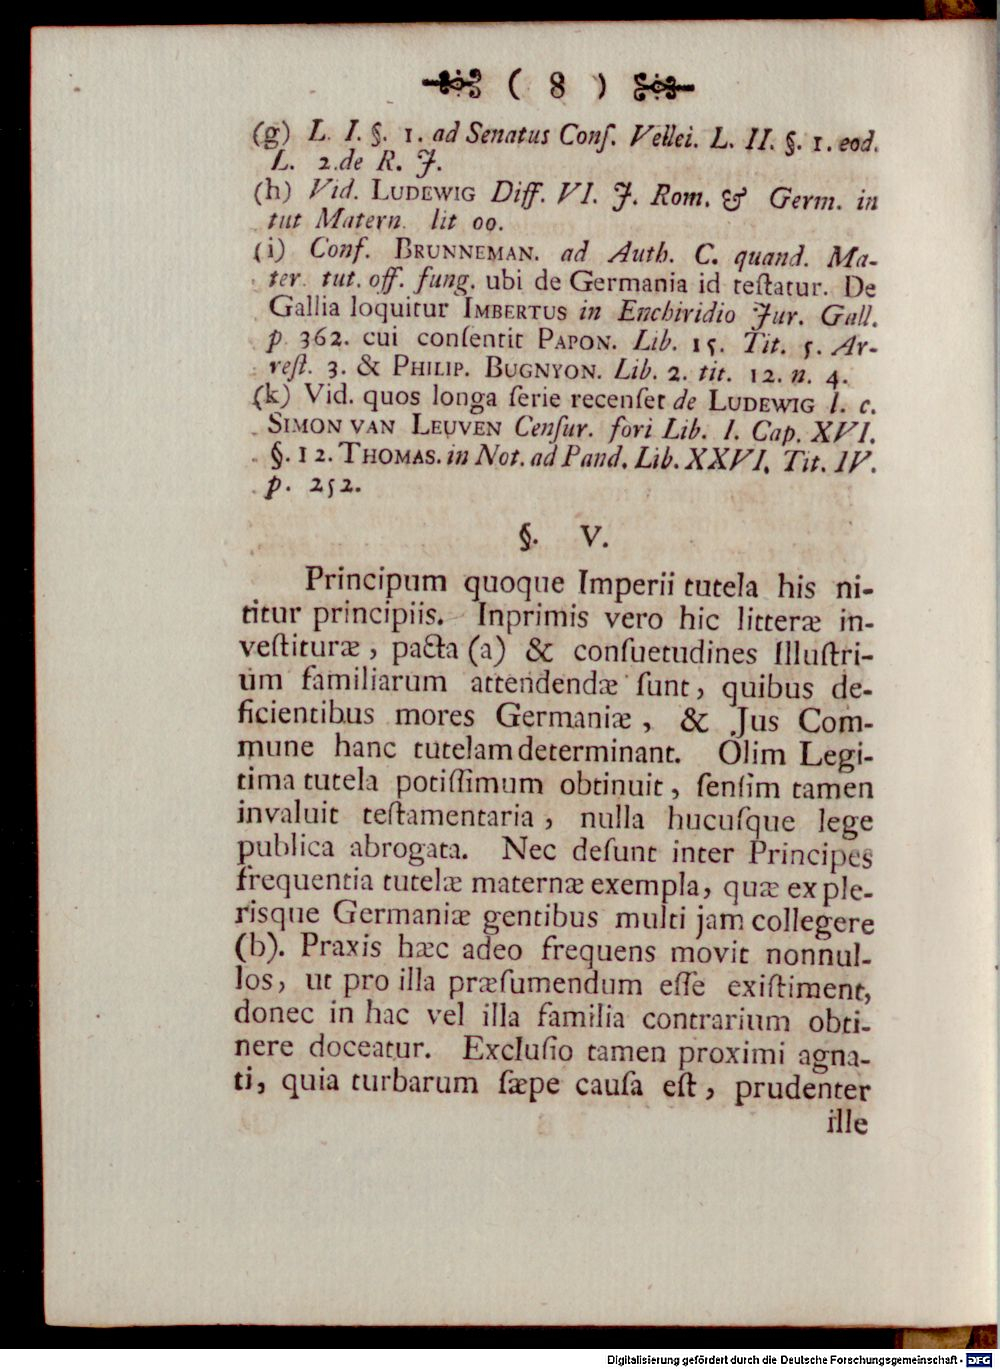 ( 8 )
(g) L. I. §. 1. ad Senatus Conſ. Vellei. L. II. §. 1. eod.
L. 2. de R. J.
(h) Vid. LUDEWIG Diff. VI. J. Rom. & Germ. in
tut Matern. lit oo.
(i) Conf. BRUNNEMAN. ad Auth. C. quand. Ma-
ter. tut. off. fung. ubi de Germania id teſtatur. De
Gallia loquitur IMBERTUS in Enchiridio Jur. Gall.
p 362. cui conſentit PAPON. Lib. 15. Tit. 5. Ar-
reſt. 3. & PHILIP. BUGNYON. Lib. 2. tit. 12. n. 4.
(k) Vid. quos longa ſerie recenſet de LUDEWIG l. c.
SIMON VAN LEUVEN Cenſur. fori Lib. I. Cap. XVI.
§. 12. THOMAS. in Not. ad Pand. Lib. XXVI. Tit. IV.
p. 252.
§. V.
Principum quoque Imperii tutela his ni-
titur principiis. Inprimis vero hic litteræ in-
veſtituræ, pacta (a) & conſuetudines Illuſtri-
um familiarum attendendæ ſunt, quibus de-
ficientibus mores Germaniæ, & Jus Com-
mune hanc tutelam determinant. Olim Legi-
tima tutela potiſſimum obtinuit, ſenſim tamen
invaluit teſtamentaria, nulla hucuſque lege
publica abrogata. Nec deſunt inter Principes
frequentia tutelæ maternæ exempla, quæ ex ple-
risque Germaniæ gentibus multi jam collegere
(b). Praxis hæc adeo frequens movit nonnul-
los, ut pro illa præſumendum eſſe exiſtiment,
donec in hac vel illa familia contrarium obti-
nere doceatur. Excluſio tamen proximi agna-
ti, quia turbarum ſæpe cauſa eſt, prudenter
ille
Digitalisierung gefördert durch die Deutsche Forschungsgemeinschaft - DFG